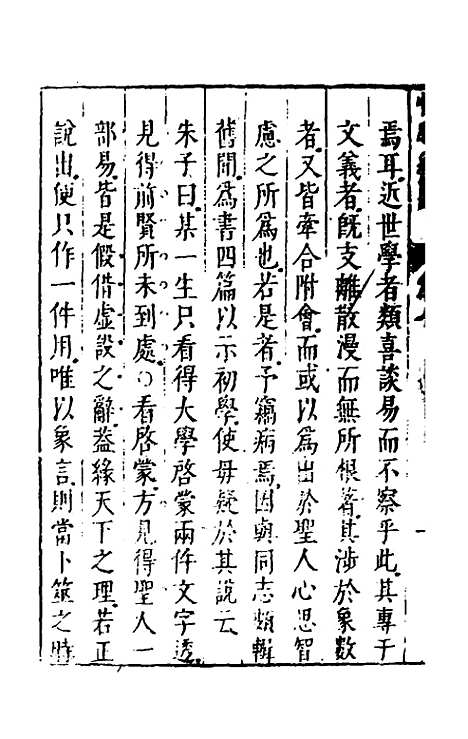 焉耳近世學者類喜談易而不察乎此其專于
文義者既支離散漫而無所根著其涉於象數
者又皆牽合附會而或以爲出於聖人心思智
慮之所爲也若是者予竊病焉因與同志頗輯
舊聞爲書四篇以示初學使毋疑於其說云
朱子曰某一生只看得大學啓蒙兩件文字透
見得前賢所未到處○看啓蒙方見得聖人一
部易皆是假借虛設之辭葢緣天下之理若正
說出便只作一件用唯以象言則當卜筮之時